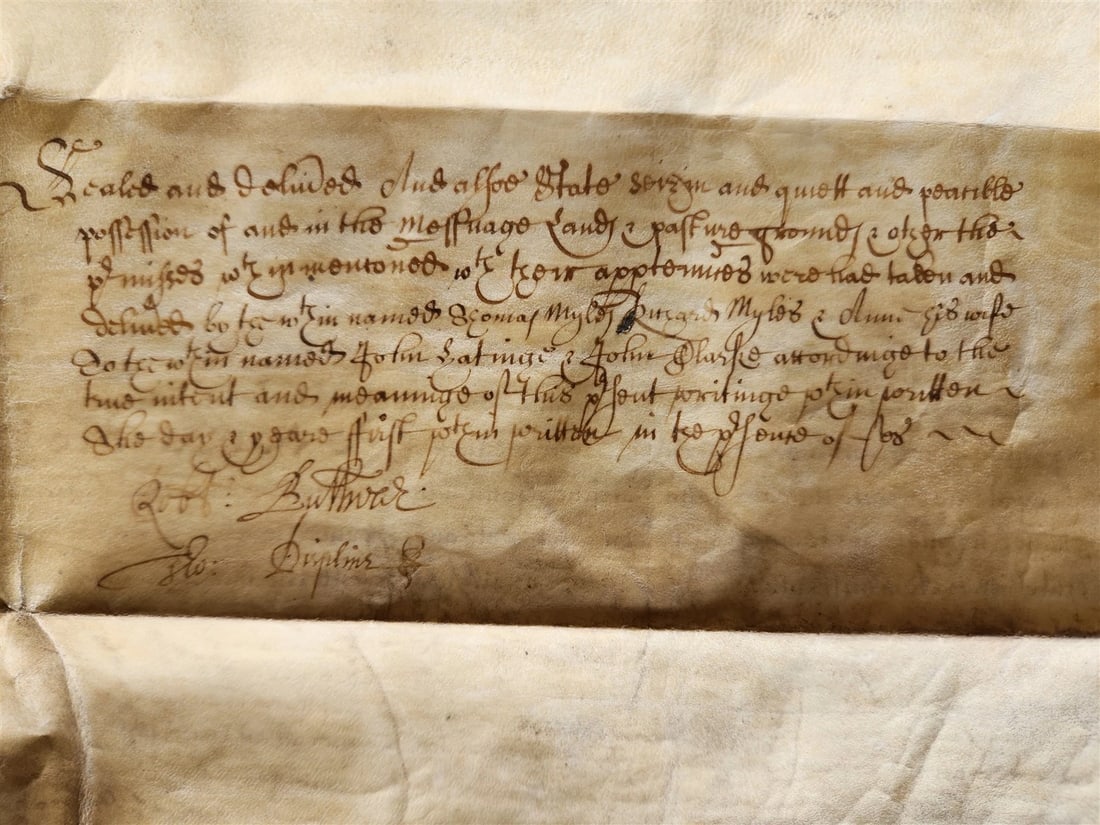 Sealed and deliũed And alsoe State Seizin and quiett and peacible
possession of and in the Messuage Lands & pasture grounds & other the
p̱misses wthin menconed wth their apptennces were had taken and
deliũed by the wthin named Thomas Myles Richard Myles & Anne his wife
To the wthin named John & John Clarke accordinge to the
true intent and meaninge of this p̱sent writinge wthin written
The day & yeare ffirst wthin written in the p̱sence of
Robt:
Tho: